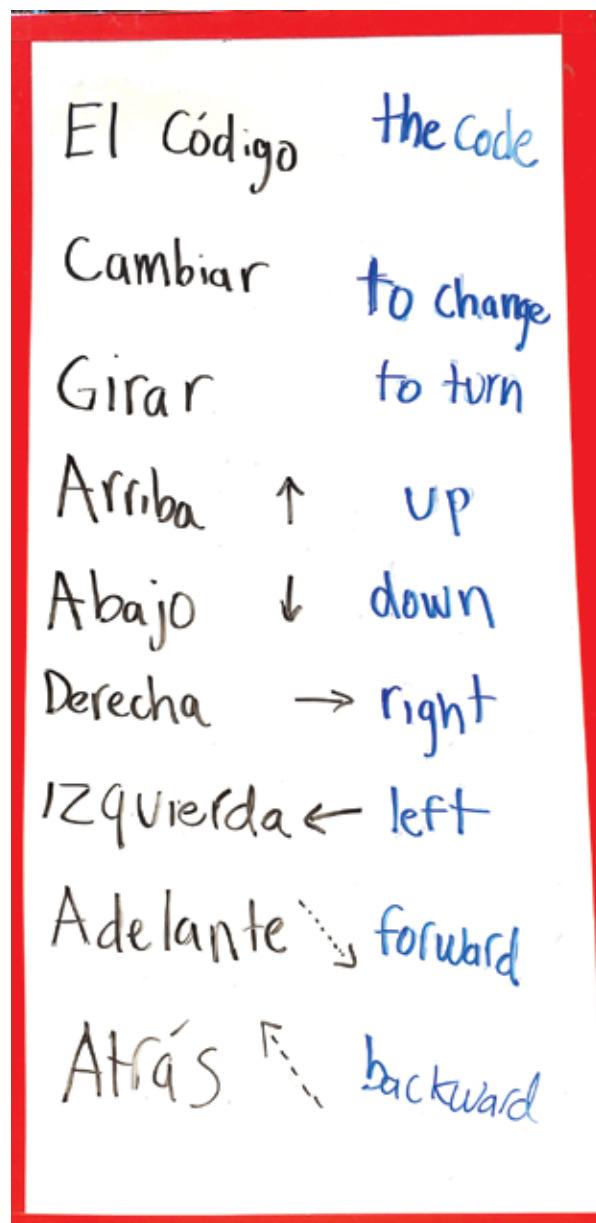 El Código the code
Cambiar to change
Girar to turn
Arriba ↑ up
Abajo ↓ down
Derecha → right
Izquierda ← left
Adelante forward
Atrás backward